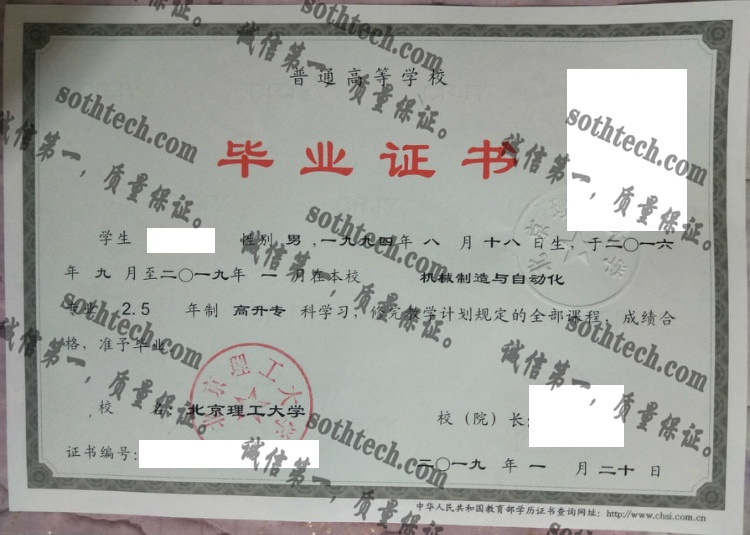 普通高等学校
毕业证书
学生 性别 男 ,一九九四年 八 月 十八 日生,于二〇一六
年 九 月至二〇一九年 一 月在本校 机械制造与自动化
专业 2.5 年制 高升专 科学习,修完教学计划规定的全部课程,成绩合
格,准予毕业
校 名: 北京理工大学
校(院)长:
证书编号:
二〇一九 年 一 月 二十 日
中华人民共和国教育部学历证书查询网址: http://www.chsi.com.cn
北京理工大学
sothtech.com
诚信第一,质量保证。
sothtech.com
诚信第一,质量保证。
sothtech.com
诚信第一,质量保证。
sothtech.com
诚信第一,质量保证。
sothtech.com
诚信第一,质量保证。
sothtech.com
诚信第一,质量保证。
sothtech.com
诚信第一,质量保证。